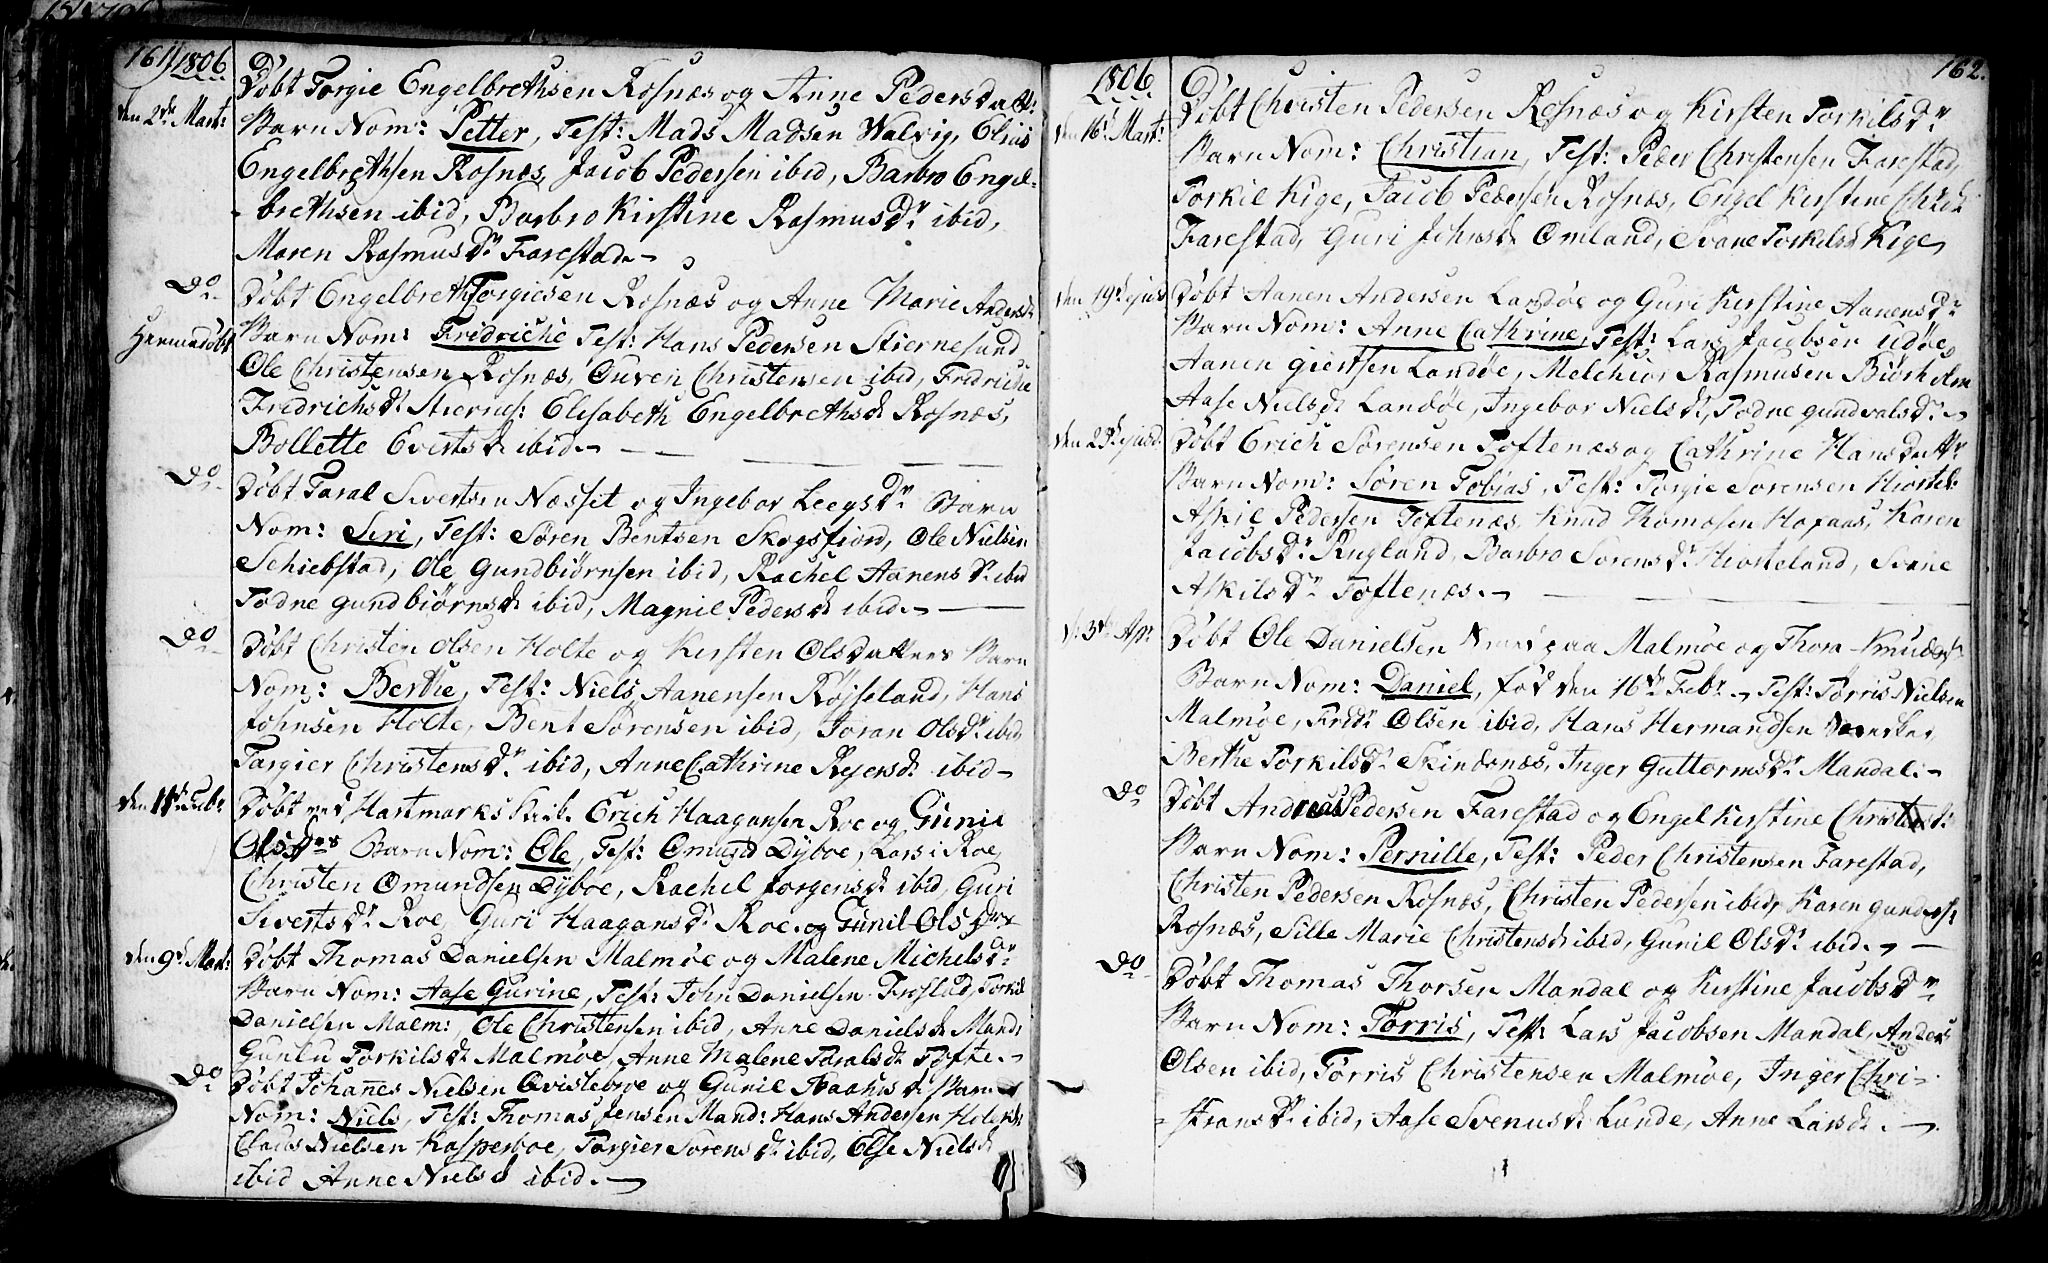 161) 1806
Døbt Torgie Engelbrethsen Rosnæs og Anne Pedersdattr:
den 2de Mart: Barn Nom: Petter, Test: Mads Madsen Walvig, Elias
Engelbrethsen Rosnæs, Jacob Pedersen ibid, Barbro Engel-
-brethsen ibid, Barbro Kirstine Rasmusdr ibid,
Maren Rasmusdr Farestad.
Do Døbt Engelbreth Torgiesen Rosnæs og Anne Marie Andersdr
Hjemmedøbt Barn Nom: Fridriche Test: Hans Pedersen Stiernesund
Ole Christensen Rosnæs, Ouven Christensen ibid, Fridriche
Fredrichsdr Stiernes: Elisabeth Engelbrethsdr Rosnæs,
Bollette Evertsdr ibid.
Do Døbt Taral Sivertsen Næsset og Ingebor Leegsdr Barn
Nom: Siri, Test: Søren Bentsen Skogsfiord, Ole Nielsen
Schiebstad, Ole Gundbiørnsen ibid, Rachel Aanensdr ibid
Todne Gundbiørnsdr ibid, Magnil Pedersdr ibid.
Do Døbt Christen Olsen Holte og Kirsten Olsdatters Barn
Nom: Berthe, Test: Niels Aanensen Røjseland, Hans
Johnsen Holte, Bent Sørensen ibid, Joran Olsdr ibid
Targier Christensdr ibid, Anne Cathrine Rejersdr ibid
den 11te Febr Døbt ved Hartmarks Kirke Erich Haagansen Roe og Gunil
Olsdrs Barn Nom: Ole, Test: Omund Dyboe, Lars i Roe,
Christen Omundsen Dyboe, Rachel Jorgensdr ibid, Guri
Sivertsdr Roe, Guri Haagansdr Roe og Gunil Olsdr
den 9de Mart: Døbt Thomas Danielsen Malmøe og Malene Michelsdr
Barn Nom: Aase Gurine, Test: John Danielsen Frøstad, Torkil
Danielsen Malm: Ole Christensen ibid, Anne Danielsdr Mand:
Gunlu Torkilsdr Malmøe, Anne Malene Taralsdr Tofte.
Do Døbt Johannes Nielsen Qvisteboe og Gunil Haaansdr Barn
Nom: Niels, Test: Thomas Jensen Mand: Hans Andersen
Clads Nielsen Kasperboe, Targier Sørensdr ibid, Else Nielsdr
ibid Anne Nielsd ibid.
162.
1806 Døbt Christen Pedersen Rosnæs og Kirsten Torkilsdr
den 16de Mart: Barn Nom: Christian, Test: Peder Christensen Farestad,
Torkil Kige, Jacob Pedersen Rosnæs, Engel Kirstine Chrdr
Farestad, Guri Johnsdr Omland, Svane Torkilsd Kige,
den 19de ejusd Døbt Aanen Andersen Landøe og Guri Kirstine Aanensdr
Barn Nom: Anne Cathrine, Test: Lars Jacobsen Udøe,
Aanen Giertsen Landøe, Melchior Rasmusen Biørholm
Aase Nielsdr Landøe, Ingebor Nielsdr, Todne Gundvalsdr
den 23de ejusd: Døbt Erich Sørensen Toftenæs og Cathrine Hansdattr
Barn Nom: Søren Tobias, Test: Torgie Sørensen Hiortel:
Askil Pedersen Toftenæs, Knud Thomasen Hafaas, Karen
Jacobsdr Rugland, Barbro Sørensdr Hiorteland, Svane
Askilsdr Toftenæs.
d: 3de Apr Døbt Ole Danielsen paa Malmøe og Thora Knudsdr
Barn Nom: Daniel, fød den 16de Febr. Test: Tørris Nielsen
Malmøe, Fredr Olsen ibid, Hans Hermandsen
Berthe Torkilsdr Skindsnæs, Inger Guttormsdr Mandal:
Do Døbt Andreas Pedersen Farestad og Engel Kirstine Christensdr
Barn Nom: Pernille, Test: Peder Christensen Farestad,
Christen Pedersen Rosnæs, Christen Pedersen ibid, Karen Gundersdr
Rosnæs, Sille Marie Christensdr ibid, Gunil Olsdr ibid.
Do Døbt Thomas Thorsen Mandal og Kirstine Jacobsdr
Barn Nom: Tørris, Test: Lars Jacobsen Mandal, Anders
Olsen ibid, Tørris Christensen Malmøe, Inger Chri-
-stiansdr ibid, Aase Svenusdr Lunde, Anne Larsdr.